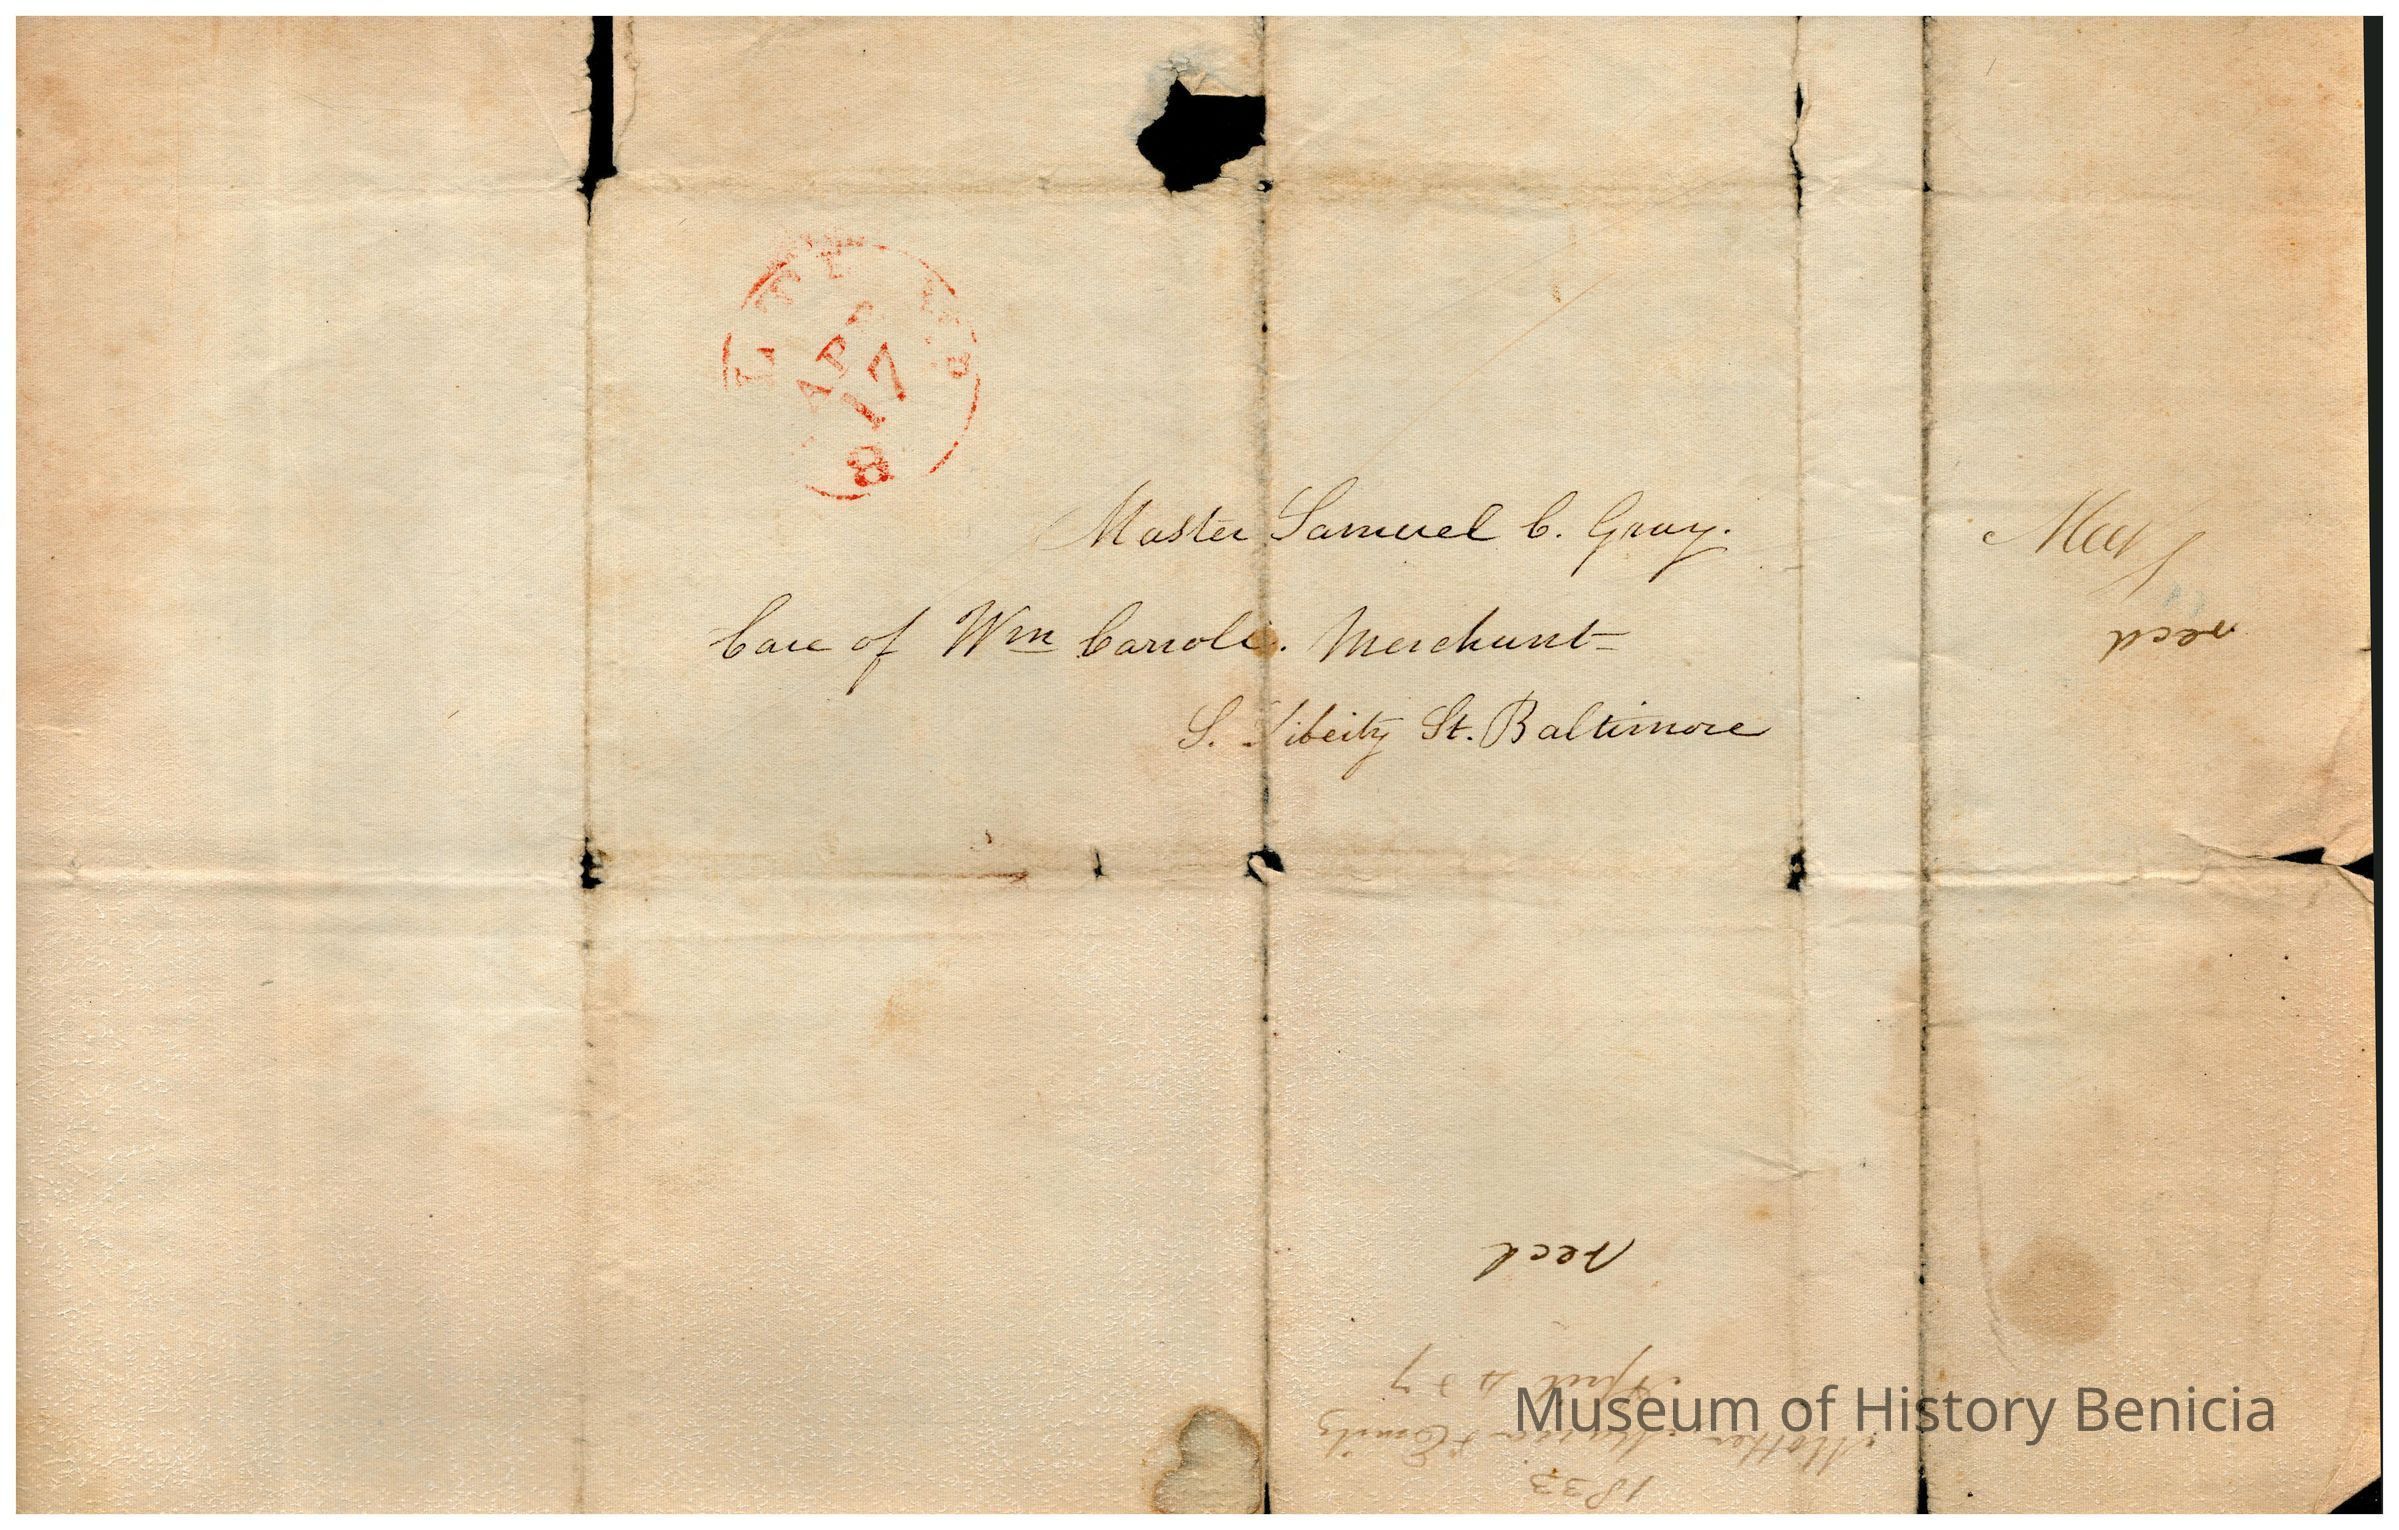 APR
17
8
Master Samuel C. Gray.
Care of Wm Carroll. Merchant
S. Liberty St. Baltimore
Mary
recd
recd
1833
Mother & Emily
April 4 & 7
Museum of History Benicia